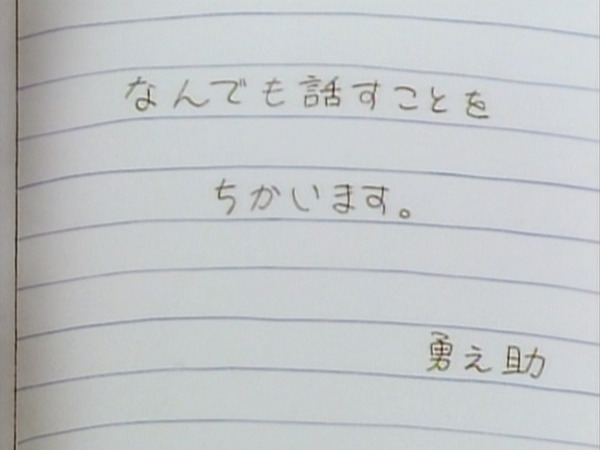 なんでも話すことを
ちかいます。
勇之助